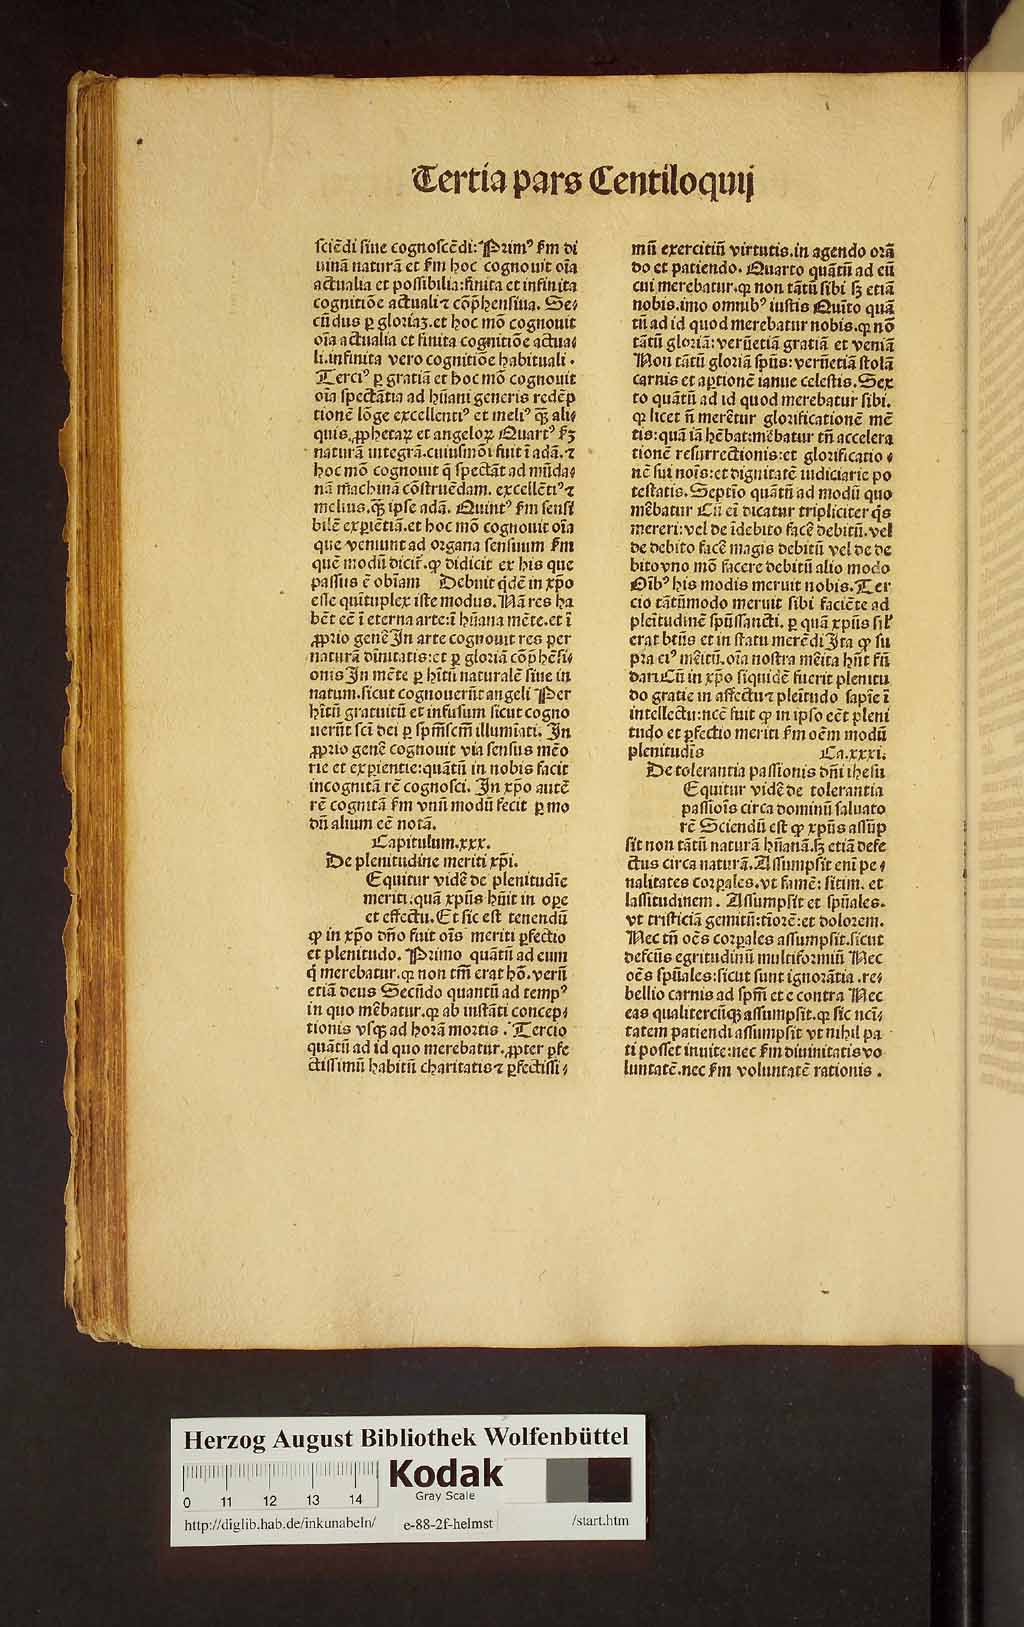 Tertia pars Centiloquij
sciēdi siue cognoscēdi: Primꝰ ẜm di
uinā naturā et ẜm hoc cognouit oīa
actualia et possibilia: finita et infinita
cognitiōe actuali ⁊ cōp̄hensiua. Se⸗
cūdus ꝑ gloriaꝫ. et hoc mō cognouit
oīa actualia et finita cognitiōe actua⸗
li. infinita vero cognitiōe habituali.
Terciꝰ ꝑ gratiā et hoc mō cognouit
oīa spectātia ad hūani generis redēp
tionē lōge excellentiꝰ et meliꝰ qꝫ̄ ali⸗
quis. ꝓphetaꝝ et angeloꝝ Quartꝰ ẜꝫ
naturā integrā. cuiusmōi fuit ī adā. ⁊
hoc mō cognouit q̄ spectāt ad mūda⸗
nā māchinā cōstruēdam. excellētiꝰ ⁊
melius. qꝫ̄ ipse adā. Quintꝰ ẜm sensi
bilē exꝑiētiā. et hoc mō cognouit oīa
que veniunt ad organa sensuum ẜm
quē modū dicit̄. ꝙ didicit ex his que
passus ē obīam Debuit q̄dē in xp̄o
esse quītuplex iste modus. Nā res ha
bēt eē ī eterna arte: ī hūana mēte. et ī
ꝓprio genē In arte cognouit res per
naturā dīnitatis: et ꝑ gloriā cōp̄hēsi⸗
onis In mēte ꝑ hītū naturalē siue in
natum. sicut cognouerūt angeli Per
hītū gratuitū et infusum sicut cogno
uerūt scī dei ꝑ spm̄scm̄ illumīati. In
ꝓprio genē cognouit via sensus mēo
rie et exꝑientie: quātū in nobis facit
incognitā rē cognosci. In xp̄o autē
rē cognitā ẜm vnū modū fecit ꝑ mo
dū alium eē notā.
Capitulum. xxx.
De plenitudine meriti xp̄i.
Equitur vidē de plenitudīe
meriti: quā xp̄us hūit in oꝑe
et effectu. Et sic est tenendū
ꝙ in xp̄o dn̄o fuit oīs meriti ꝑfectio
et plenitudo. Primo quātū ad eum
q̄ merebatur. qꝛ non tm̄ erat hō. verū
etiā deus Secūdo quantū ad tempꝰ
in quo mēbatur. qꝛ ab instāti concep⸗
tionis vsqꝫ ad horā mortis. Tercio
quātū ad id quo merebatur. ꝓpter ꝑfe
ctissimū habitū charitatis ⁊ ꝑfectissi⸗
mū exercitiū virtutis. in agendo orā
do et patiendo. Quarto quātū ad eū
cui merebatur. qꝛ non tātū sibi sꝫ etiā
nobis. imo omnibꝰ iustis Quīto quā
tū ad id quod merebatur nobis. qꝛ nō
tātū gloriā: verūetiā gratiā et veniā
Non tātū gloriā sp̄us: verūetiā stolā
carnis et aꝑtionē ianue celestis. Sex
to quātū ad id quod merebatur sibi.
qꝛ licet n̄ merētur glorificationē mē
tis: quā iā hēbat: mēbatur tn̄ accelera
tionē resurrectionis: et glorificatio⸗
nē sui noīs: et dignitatē iudiciarie po
testatis. Septīo quātū ad modū quo
mēbatur Cū eī dicatur tripliciter q̄s
mereri: vel de īdebito facē debitū. vel
de debito facē magis debitū vel de de
bito vno mō facere debitū alio modo
Oībꝰ his modis meruit nobis. Ter
cio tātūmodo meruit sibi faciēte ad
pleītudinē sp̄ussancti. ꝑ quā xp̄us sil̄
erat btūs et in statu merēdi Ita ꝙ su
pra eiꝰ mēitū. oīa nostra mēita hn̄t fū
dari Cū in xp̄o siquidē fuerit plenitu
do gratie in affectu ⁊ pleītudo sapīe ī
intellectu: necē fuit ꝙ in ipso eēt pleni
tudo et ꝑfectio meriti ẜm oēm modū
plenitudīs Ca. xxxi.
De tolerantia passionis dn̄i ihesu
Equitur vidē de tolerantia
passiōis circa dominū saluato
rē Sciendū est ꝙ xp̄us assūp
sit non tātū naturā hūanā. sꝫ etiā defe
ctus circa naturā. Assumpsit enī pe⸗
nalitates corꝑales. vt famē: sitim. et
lassitudinem. Assumpsit et sp̄uales.
vt tristiciā gemitū: tīorē: et dolorem.
Nec tn̄ oēs corꝑales assumpsit. sicut
defcūs egritudinū multiformiū Nec
oēs sp̄uales: sicut sunt ignorātia. re⸗
bellio carnis ad spm̄ et e contra Nec
eas qualitercūqꝫ assumpsit. qꝛ sic ncī⸗
tatem patiendi assumpsit vt nihil pa
ti posset inuite: nec ẜm diuinitatis vo
luntatē. nec ẜm voluntatē rationis.
Herzog August Bibliothek Wolfenbüttel
Kodak
Gray Scale
0 11 12 13 14
http://diglib.hab.de/inkunabeln/ e-88-2f-helmst /start.htm